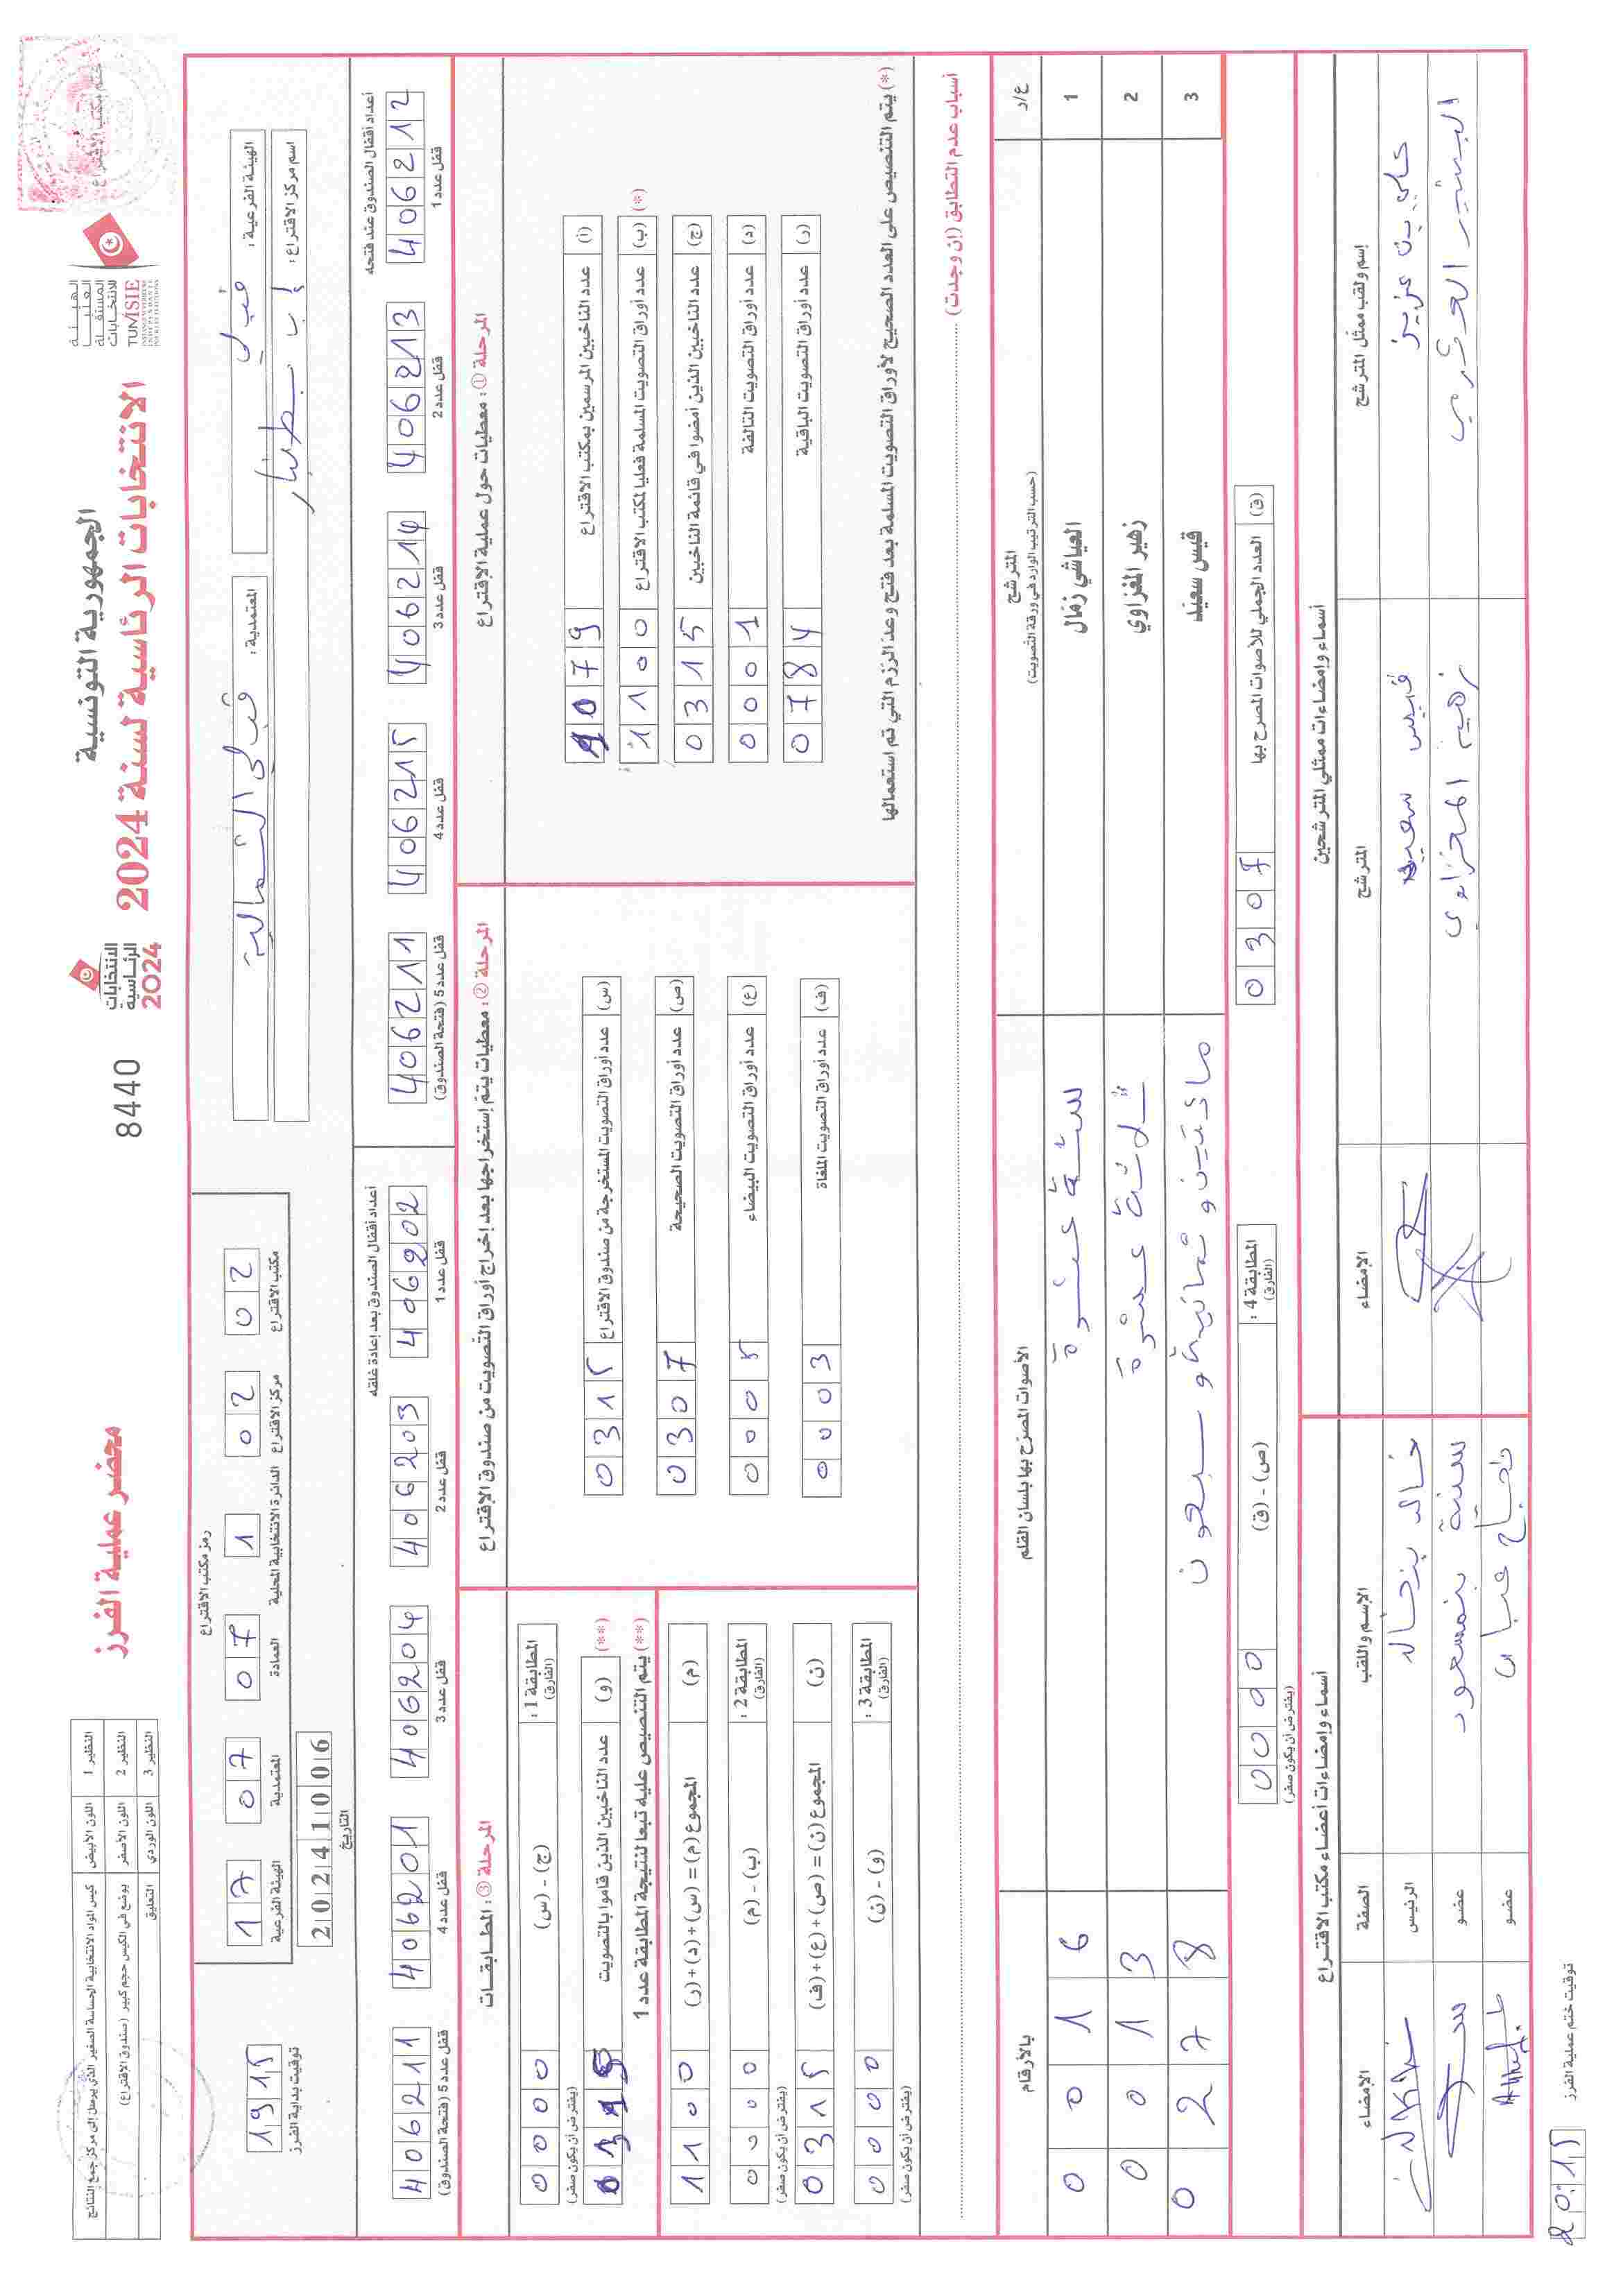 الجمهورية التونسية
الانتخابات الرئاسية لسنة 2024
الهيئة
العليا
المستقلة
للانتخابات
TUNISIE
الانتخابات
الرئاسية
2024
8440
محضر عملية الفرز
النظير 1 اللون الأبيض كيس المواد الانتخابية الحساسة الصغير الذي يرسل إلى مركز جمع النتائج
النظير 2 اللون الأصفر يوضع في الكيس حجم كبير (صندوق الاقتراع)
النظير 3 اللون الوردي التعليق
الهيئة الفرعية: قبلي
المعتمدية: قبلي الشمالية
اسم مركز الاقتراع:
رمز مكتب الاقتراع
مكتب الاقتراع 02
مركز الاقتراع 02
الدائرة الانتخابية المحلية 1
العمادة 07
المعتمدية 07
الهيئة الفرعية 17
التاريخ 20241006
توقيت بداية الفرز 1915
أعداد أقفال الصندوق عند فتحه
قفل عدد 1 406212
قفل عدد 2 406213
قفل عدد 3 406214
قفل عدد 4 406215
قفل عدد 5 (فتحة الصندوق) 406211
أعداد أقفال الصندوق بعد إعادة غلقه
قفل عدد 1 406202
قفل عدد 2 406203
قفل عدد 3 406204
قفل عدد 4 406201
قفل عدد 5 (فتحة الصندوق) 406211
المرحلة ①: معطيات حول عملية الاقتراع
(أ) عدد الناخبين المرسمين بمكتب الاقتراع 1079
(*) (ب) عدد أوراق التصويت المسلمة فعليا لمكتب الاقتراع 1100
(ج) عدد الناخبين الذين أمضوا في قائمة الناخبين 0315
(د) عدد أوراق التصويت التالفة 0001
(ر) عدد أوراق التصويت الباقية 0784
(*) يتم التنصيص على العدد الصحيح لأوراق التصويت المسلمة بعد فتح وعد الرزم التي تم استعمالها
المرحلة ②: معطيات يتم إستخراجها بعد إخراج أوراق التصويت من صندوق الاقتراع
(س) عدد أوراق التصويت المستخرجة من صندوق الاقتراع 0315
(ص) عدد أوراق التصويت الصحيحة 0307
(ع) عدد أوراق التصويت البيضاء 0005
(ف) عدد أوراق التصويت الملغاة 0003
المرحلة ③: المطابقات
المطابقة 1: (الفارق) (ج) - (س) 0000
(يفترض أن يكون صفر)
(**) (و) عدد الناخبين الذين قاموا بالتصويت 0315
(**) يتم التنصيص عليه تبعا لنتيجة المطابقة عدد 1
(م) المجموع (م) = (س) + (د) + (ر) 1100
المطابقة 2: (الفارق) (ب) - (م) 0000
(يفترض أن يكون صفر)
(ن) المجموع (ن) = (ص) + (ع) + (ف) 0315
المطابقة 3: (الفارق) (و) - (ن) 0000
(يفترض أن يكون صفر)
أسباب عدم التطابق (إن وجدت)
ع/د المترشح (حسب الترتيب الوارد في ورقة التصويت) الأصوات المصرح بها بلسان القلم بالأرقام
1 العياشي زمال ستة عشرة 0016
2 زهير المغزاوي ثلاثة عشرة 0013
3 قيس سعيد مائتين و ثمانية و سبعون 0278
(ق) العدد الجملي للأصوات المصرح بها 0307
المطابقة 4: (الفارق) (ص) - (ق) 0000
(يفترض أن يكون صفر)
أسماء وإمضاءات ممثلي المترشحين
إسم ولقب ممثل المترشح المترشح الإمضاء
علي بن عزيز قيس سعيد
البشير زهير المغزاوي
أسماء وإمضاءات أعضاء مكتب الاقتراع
الإسم واللقب الصفة الإمضاء
خالد بنخالد الرئيس
بنمسعود عضو
نجاح عضو
توقيت ختم عملية الفرز 20:15